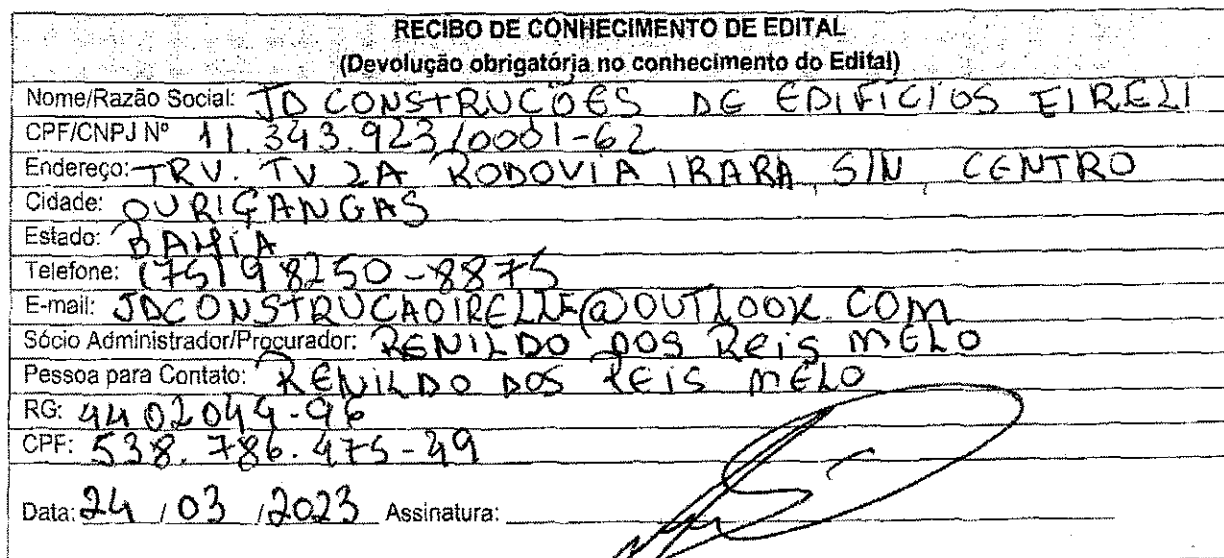 RECIBO DE CONHECIMENTO DE EDITAL
(Devolução obrigatória no conhecimento do Edital)
Nome/Razão Social: JD CONSTRUCÕES DE EDIFICIOS EIRELI
CPF/CNPJ Nº 11.343.923/0001-62
Endereço: TRV. TV 2A RODOVIA IRARA, S/N CENTRO
Cidade: OURIÇANGAS
Estado: BAHIA
Telefone: (75) 98250-8875
E-mail: JDCONSTRUCAOIRELLE@OUTLOOK.COM
Sócio Administrador/Procurador: RENILDO DOS REIS MELO
Pessoa para Contato: RENILDO DOS REIS MELO
RG: 4402044-96
CPF: 538.786.475-49
Data: 24 / 03 / 2023 Assinatura: